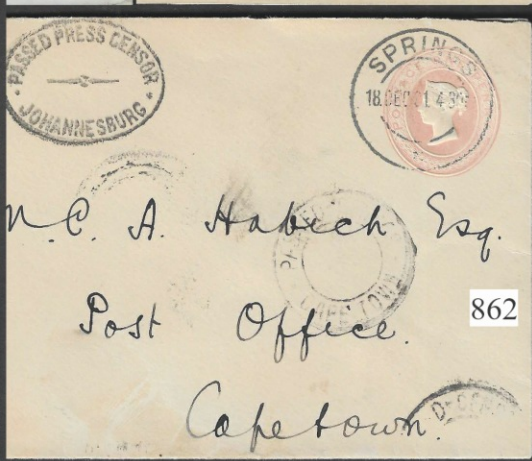 PASSED PRESS CENSOR
JOHANNESBURG
SPRINGS
18 DEC 01 4 30
N. C. A. Habich Esq.
Post Office.
Capetown.
CAPE TOWN
862